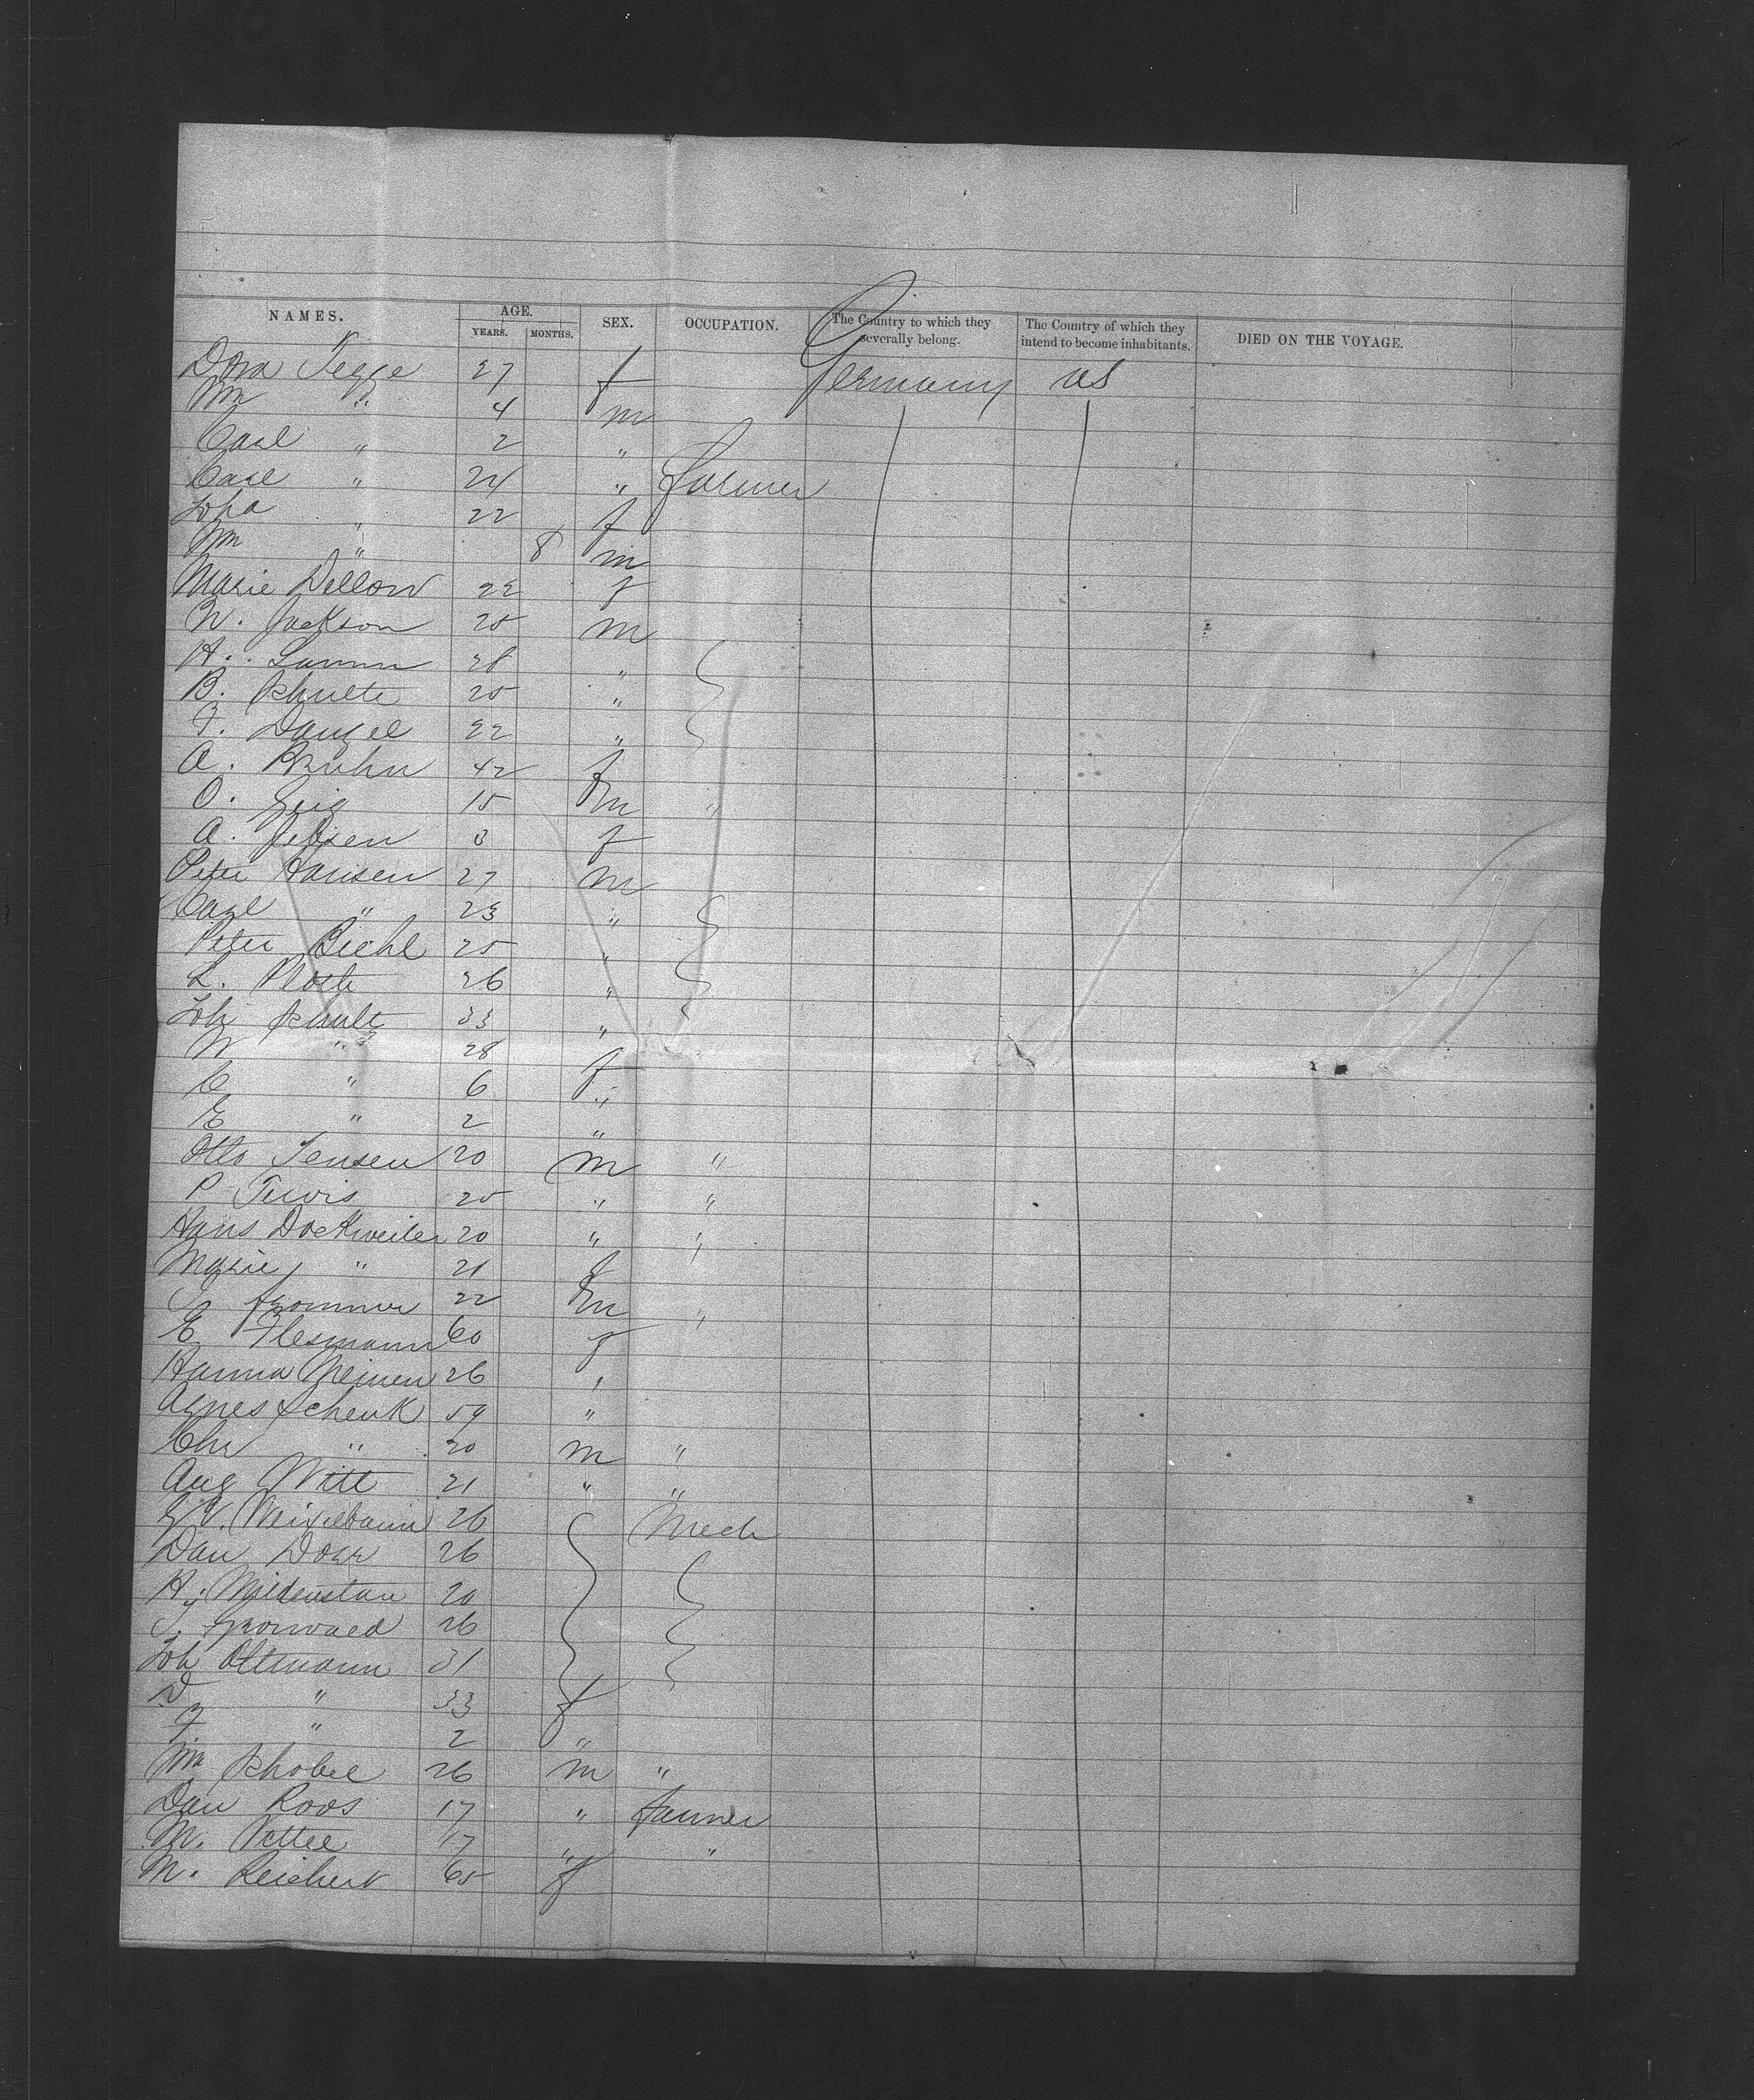 NAMES. AGE. YEARS. MONTHS. SEX. OCCUPATION. The Country to which they severally belong. The Country of which they intend to become inhabitants. DIED ON THE VOYAGE.
Dora Tegge 27 f Germany US
Wm " 4 m
Carl " 2 "
Carl " 24 " farmer
22 f
Wm " 8 m
Marie Dellow 22 f
W. Jackson 20 m
H. Lamm 28 "
B. Schulte 20 "
F. Dangel 22 "
A. Bruhn 42 f
O. 15 m "
A. Jebsen 3 f
Peter Hansen 27 m
Carl " 23 "
Peter Biehl 25 "
L. 26 "
Joh Schult 33 "
W " 28 f
C " 6 "
E " 2 "
Otto Jensen 20 m "
P 20 " "
Hans Dockweiler 20 " "
Marie " 21 f
Frommer 22 m "
E Flesmann 60 f
Hanna Meinen 26 "
Agnes Schenk 59 "
Chr " 20 m "
Aug Witt 21 " "
26 Mech
Dan Dohr 26
H. Mildenstein 20
26
Joh Oltmann 31
D " 33 f
F " 2 "
Wm Schobel 26 m "
Dan Roos 17 " farmer
M. 17 " "
M. Reichert 65 f